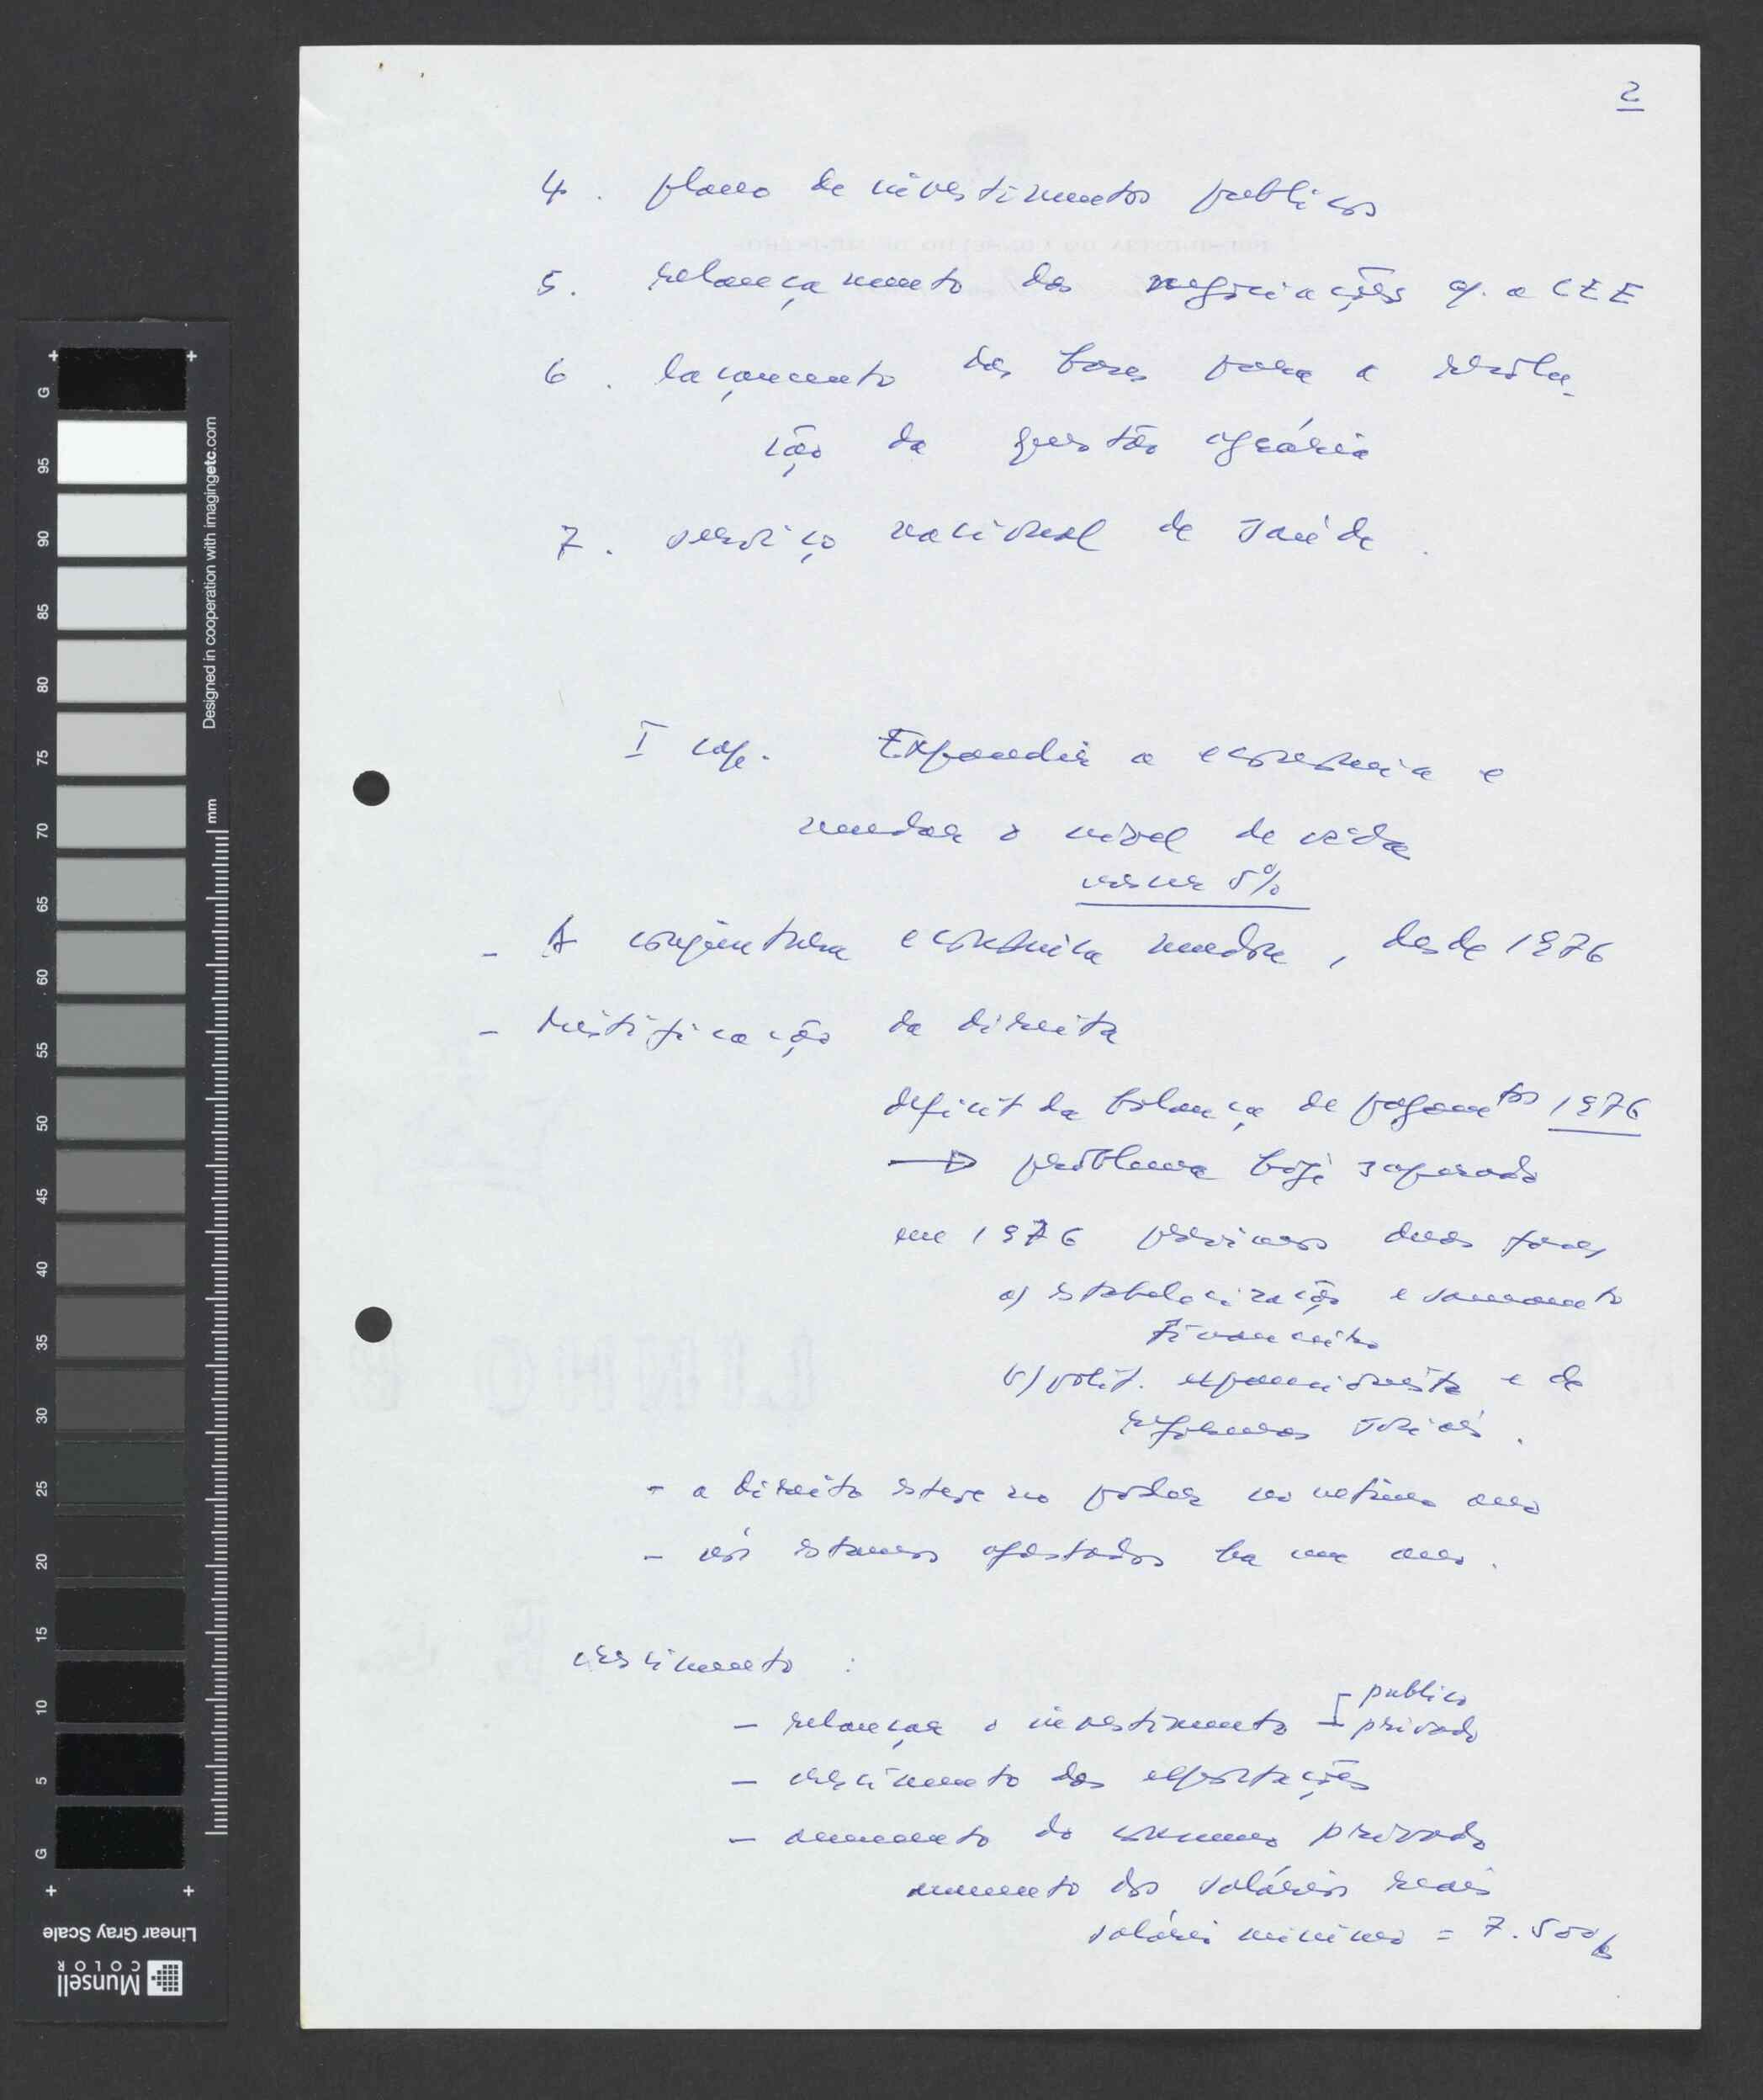 2
4. plano de investimentos publicos
5. relançamento das negociações c/. a CEE
6. laçamento das bases para a resolu-
ção da questão agrária
7. serviço nacional de saúde.
I cap. Expandir a economia e
mudar o nivel de vida
crescer 5%
- A conjuntura economica mudou, desde 1976
- Mistificação da direita
deficit da balança de pagamtos 1976
→ problema hoje superado
em 1976 previmos duas fases
a) estabelecização e saneamento
financeiro
b) polit. expansionista e de
reformas sociais.
- a direita esteve no poder no ultimo ano
- nós estamos afastados ha um ano.
crescimento :
- relançar o investimento publico
privado
- crescimento das exportações
- aumento do consumo privado
aumento dos salários reais
salário minimo = 7.500$
G 95 90 85 80 75 70 65 60 55 50 45 40 35 30 25 20 15 10 5 G
Designed in cooperation with imagingetc.com
mm
Linear Gray Scale
Munsell
COLOR